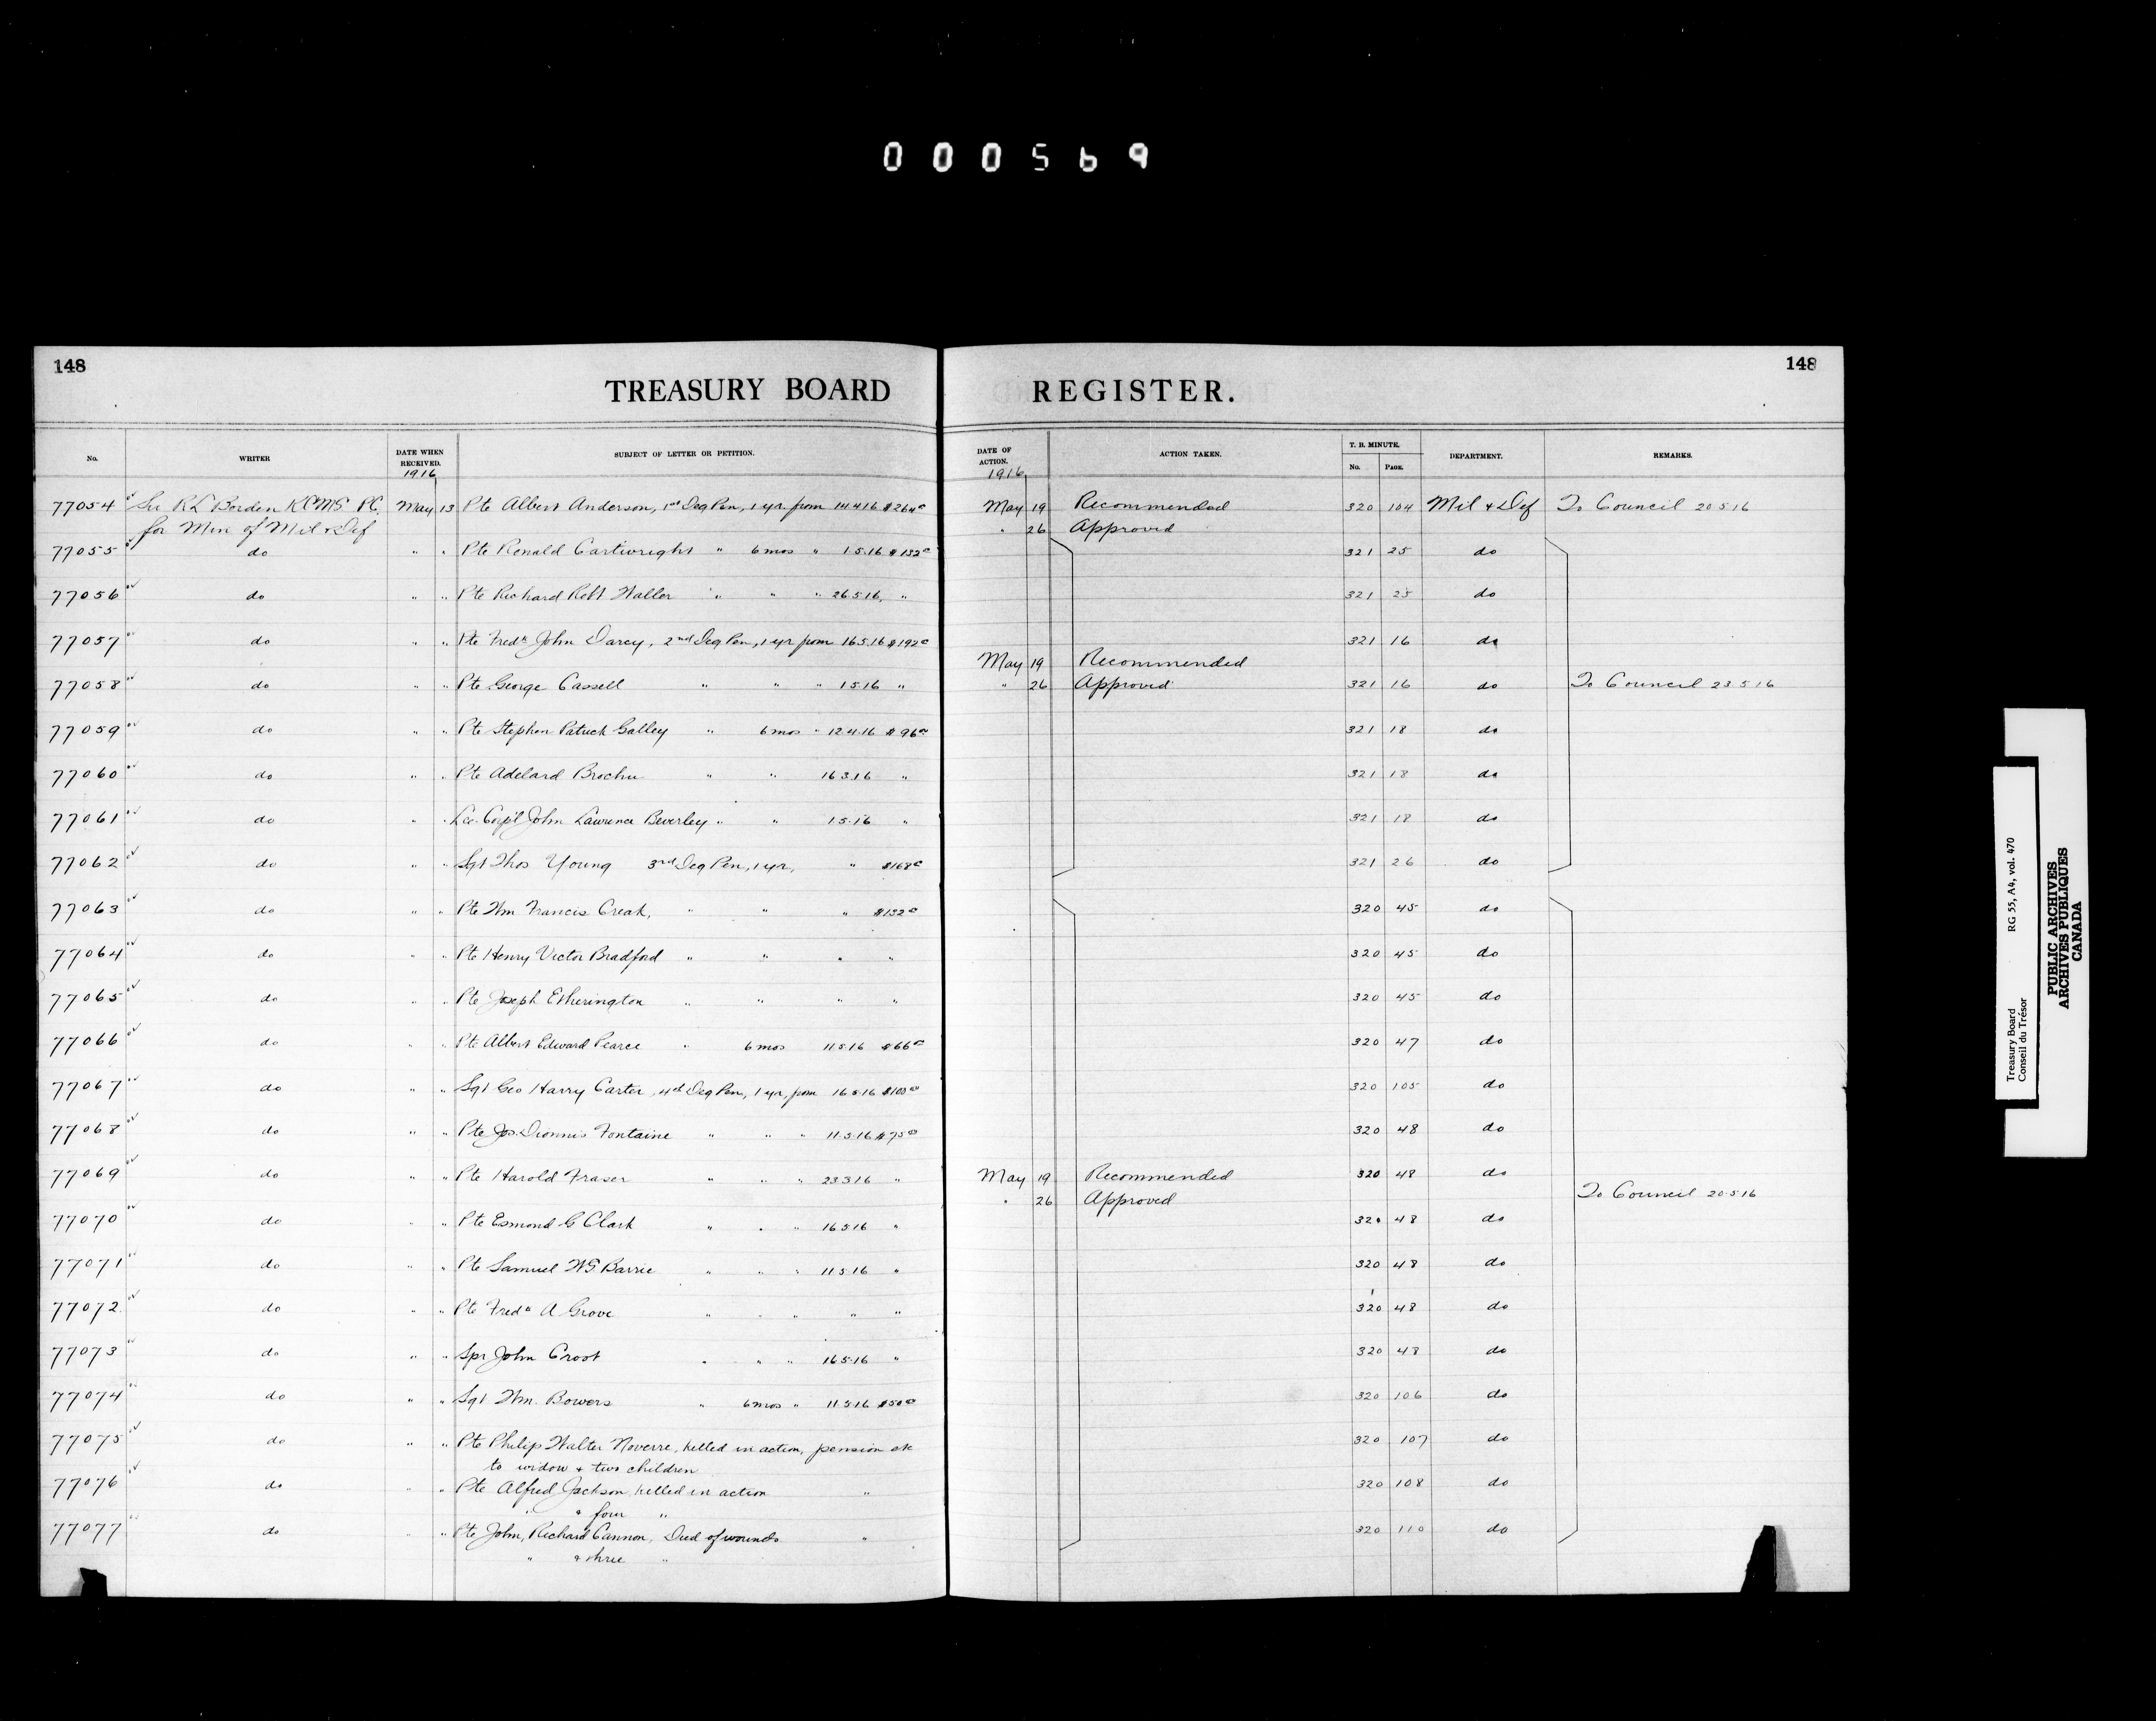 000569
148
148
TREASURY BOARD REGISTER.
No. WRITER DATE WHEN RECEIVED. SUBJECT OF LETTER OR PETITION. DATE OF ACTION. ACTION TAKEN. T. B. MINUTE. No. PAGE. DEPARTMENT. REMARKS.
1916 1916
77054 Sir R L Borden KCMG PC May 13 Pte Albert Anderson, 1st Deg Pen, 1 yr from 14.4.16 $264 May 19 Recommended 320 104 Mil & Def To Council 20 5 16
for Min of Mil & Def " 26 Approved
77055 do " " Pte Ronald Cartwright " 6 mos " 1.5.16 $132 321 25 do
77056 do " " Pte Richard Robt Waller " " " 26.5.16, " 321 25 do
77057 do " " Pte Fredk John Darcy, 2nd Deg Pen, 1 yr from 16.5.16 $192 321 16 do
May 19 Recommended
77058 do " " Pte George Cassell " " " 1.5.16 " " 26 Approved 321 16 do To Council 23 5 16
77059 do " " Pte Stephen Patrick Galley " 6 mos " 12.4.16 $96 321 18 do
77060 do " " Pte Adelard Brochu " " 16.3.16 " 321 18 do
77061 do " " Lce. Corp'l John Lawrence Beverley " " 1.5.16 " 321 18 do
77062 do " " Sgt Thos Young 3rd Deg Pen, 1 yr, " $168 321 26 do
77063 do " " Pte Wm Francis Creak, " " " $132 320 45 do
77064 do " " Pte Henry Victor Bradford " " " " 320 45 do
77065 do " " Pte Joseph Etherington " " " " 320 45 do
77066 do " " Pte Albert Edward Pearce " 6 mos 11.5.16 $66 320 47 do
77067 do " " Sgt Geo Harry Carter, 4th Deg Pen, 1 yr, from 16.5.16 $100 320 105 do
77068 do " " Pte Jos. Dionnis Fontaine " " " 11.5.16 $75 320 48 do
77069 do " " Pte Harold Fraser " " " 23.3.16 " May 19 Recommended 320 48 do
" 26 Approved To Council 20 5 16
77070 do " " Pte Esmond G Clark " " " 16.5.16 " 320 48 do
77071 do " " Pte Samuel WG Barrie " " " 11.5.16 " 320 48 do
77072 do " " Pte Fredk A Grove " " " " " 320 48 do
77073 do " " Spr John Croot " " " 16.5.16 " 320 48 do
77074 do " " Sgt Wm. Bowers " 6 mos " 11.5.16 $50 320 106 do
77075 do " " Pte Philip Walter Noverre, killed in action, pension etc 320 107 do
to widow & two children
77076 do " " Pte Alfred Jackson, killed in action " 320 108 do
" " four "
77077 do " " Pte John, Richard Cannon, Died of wounds " 320 110 do
" & three "
Treasury Board RG 55, A4, vol. 470
Conseil du Trésor
PUBLIC ARCHIVES
ARCHIVES PUBLIQUES
CANADA